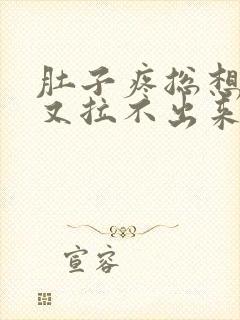 肚子疼总想
又拉不出来
宣容